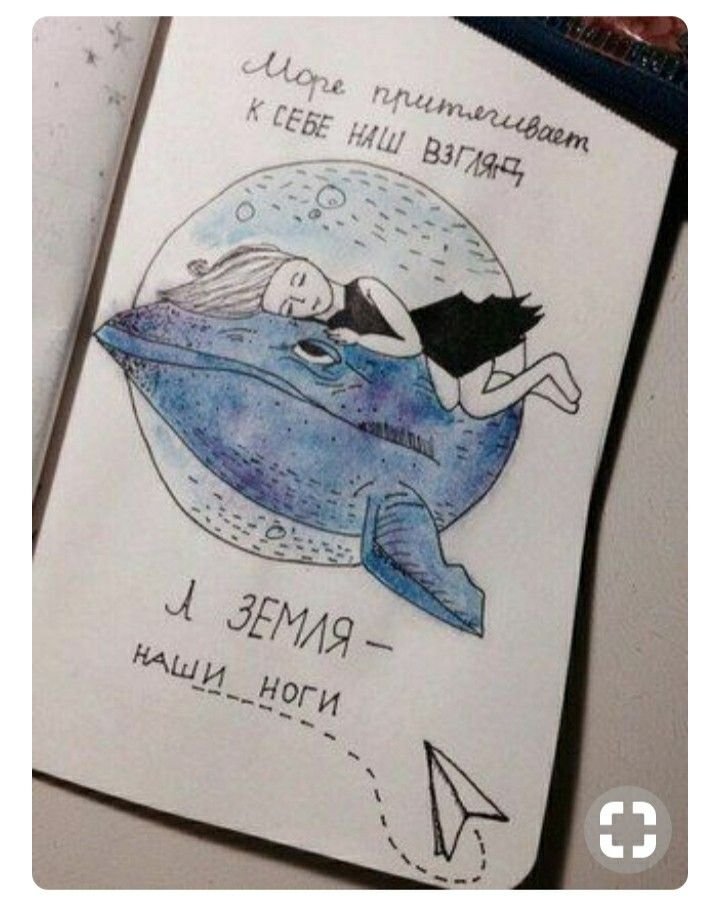 Море притягивает
К СЕБЕ НАШ ВЗГЛЯД,
А ЗЕМЛЯ —
НАШИ НОГИ